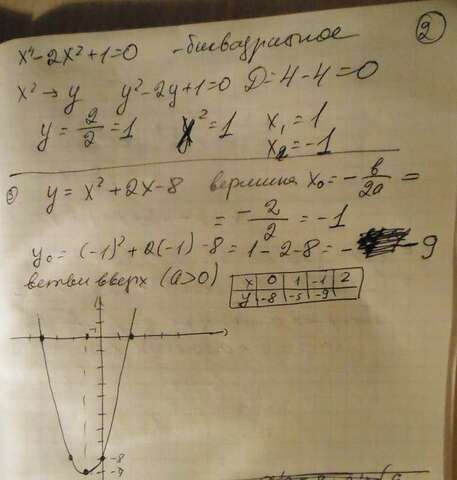 ②
x⁴-2x²+1=0 -биквадратное
x² → y y²-2y+1=0 D=4-4=0
y = 2/2 = 1 x²=1 x₁ = 1
x₂ = -1
③ y = x² + 2x - 8 вершина x₀ = - в/2a =
= - 2/2 = -1
y₀ = (-1)² + 2(-1) - 8 = 1 - 2 - 8 = - 9
ветви вверх (a>0)
x 0 1 -1 2
y -8 -5 -9
-1
-8
-9